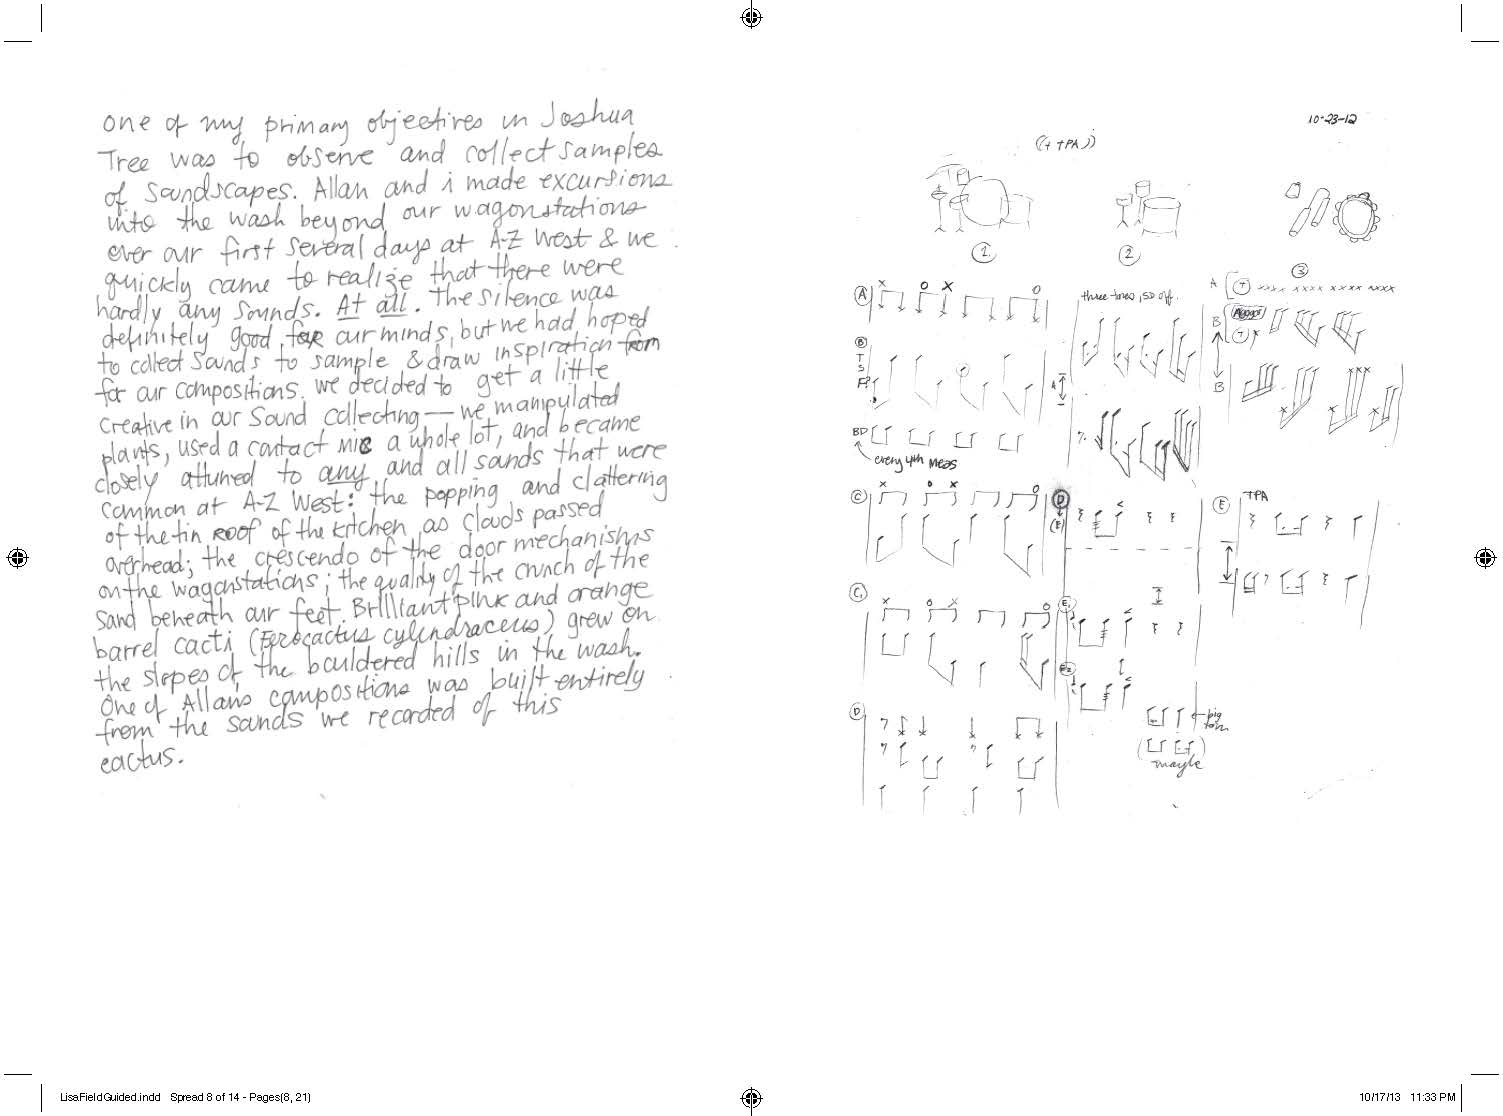 one of my primary objectives in Joshua
Tree was to observe and collect samples
of soundscapes. Allan and i made excursions
into the wash beyond our wagonstations
over our first several days at A-Z West & we
quickly came to realize that there were
hardly any sounds. At all. The silence was
definitely good for our minds, but we had hoped
to collect sounds to sample & draw inspiration from
for our compositions. we decided to get a little
creative in our sound collecting — we manipulated
plants, used a contact mic a whole lot, and became
closely attuned to any and all sounds that were
common at A-Z West: the popping and clattering
of the tin roof of the kitchen as clouds passed
overhead; the crescendo of the door mechanisms
on the wagonstations; the quality of the crunch of the
sand beneath our feet. Brilliant pink and orange
barrel cacti (Ferocactus cylindraceus) grew on
the slopes of the bouldered hills in the wash.
One of Allan's compositions was built entirely
from the sounds we recorded of this
cactus.
10-23-12
((+ TPA))
1.
2
3
A
A T xxxx xxxx xxxx xxxx
three toms, SD off.
B
T
S
B
T
B
BD
every 4th meas
C
D
(E)
E
TPA
C1
E1
E2
D
big
tom
maybe
LisaFieldGuided.indd Spread 8 of 14 - Pages(8, 21)
10/17/13 11:33 PM